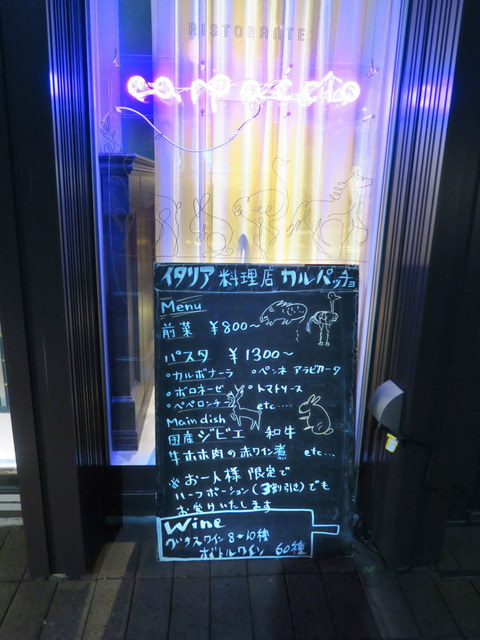 RISTORANTE
carpaccio
イタリア料理店 カルパッチョ
Menu
前菜 ¥800~
パスタ ¥1300~
・カルボナーラ ・ペンネ アラビアータ
・ボロネーゼ ・トマトソース
・ペペロンチーノ etc....
Main dish
国産ジビエ 和牛
牛ホホ肉の赤ワイン煮 etc...
※ お一人様 限定で
ハーフポーション(3割引き)でも
お受けいたします
Wine
グラスワイン 8~10種
ボトルワイン 60種